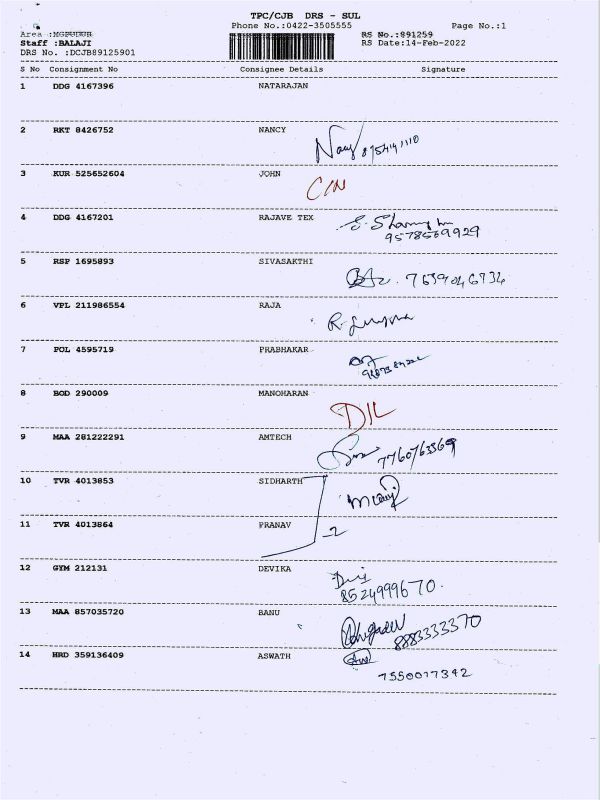 TPC/CJB DRS - SUL
Phone No.:0422-3505555 Page No.:1
Area :MGPUDUR RS No.:891259
Staff :BALAJI RS Date:14-Feb-2022
DRS No. :DCJB89125901
S No Consignment No Consignee Details Signature
1 DDG 4167396 NATARAJAN
2 RKT 8426752 NANCY
Nancy
3 KUR 525652604 JOHN
C/N
4 DDG 4167201 RAJAVE TEX
9578569929
5 RSP 1695893 SIVASAKTHI
7639046734
6 VPL 211986554 RAJA
7 POL 4595719 PRABHAKAR
8 BOD 290009 MANOHARAN
D/L
9 MAA 281222291 AMTECH
7760763369
10 TVR 4013853 SIDHARTH
11 TVR 4013864 PRANAV
-2
12 GYM 212131 DEVIKA
8524999670.
13 MAA 857035720 BANU
8883333370
14 HRD 359136409 ASWATH
7550077342